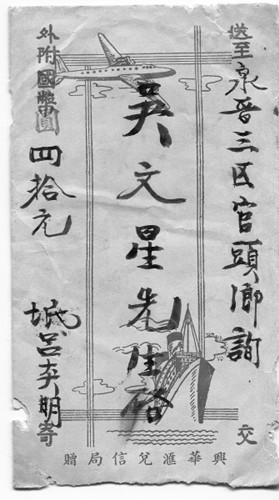 送至泉晋三区官頭鄉詢交
吳文星先生啓
外附國幣圓四拾元
城呂明寄
興華滙兌信局贈